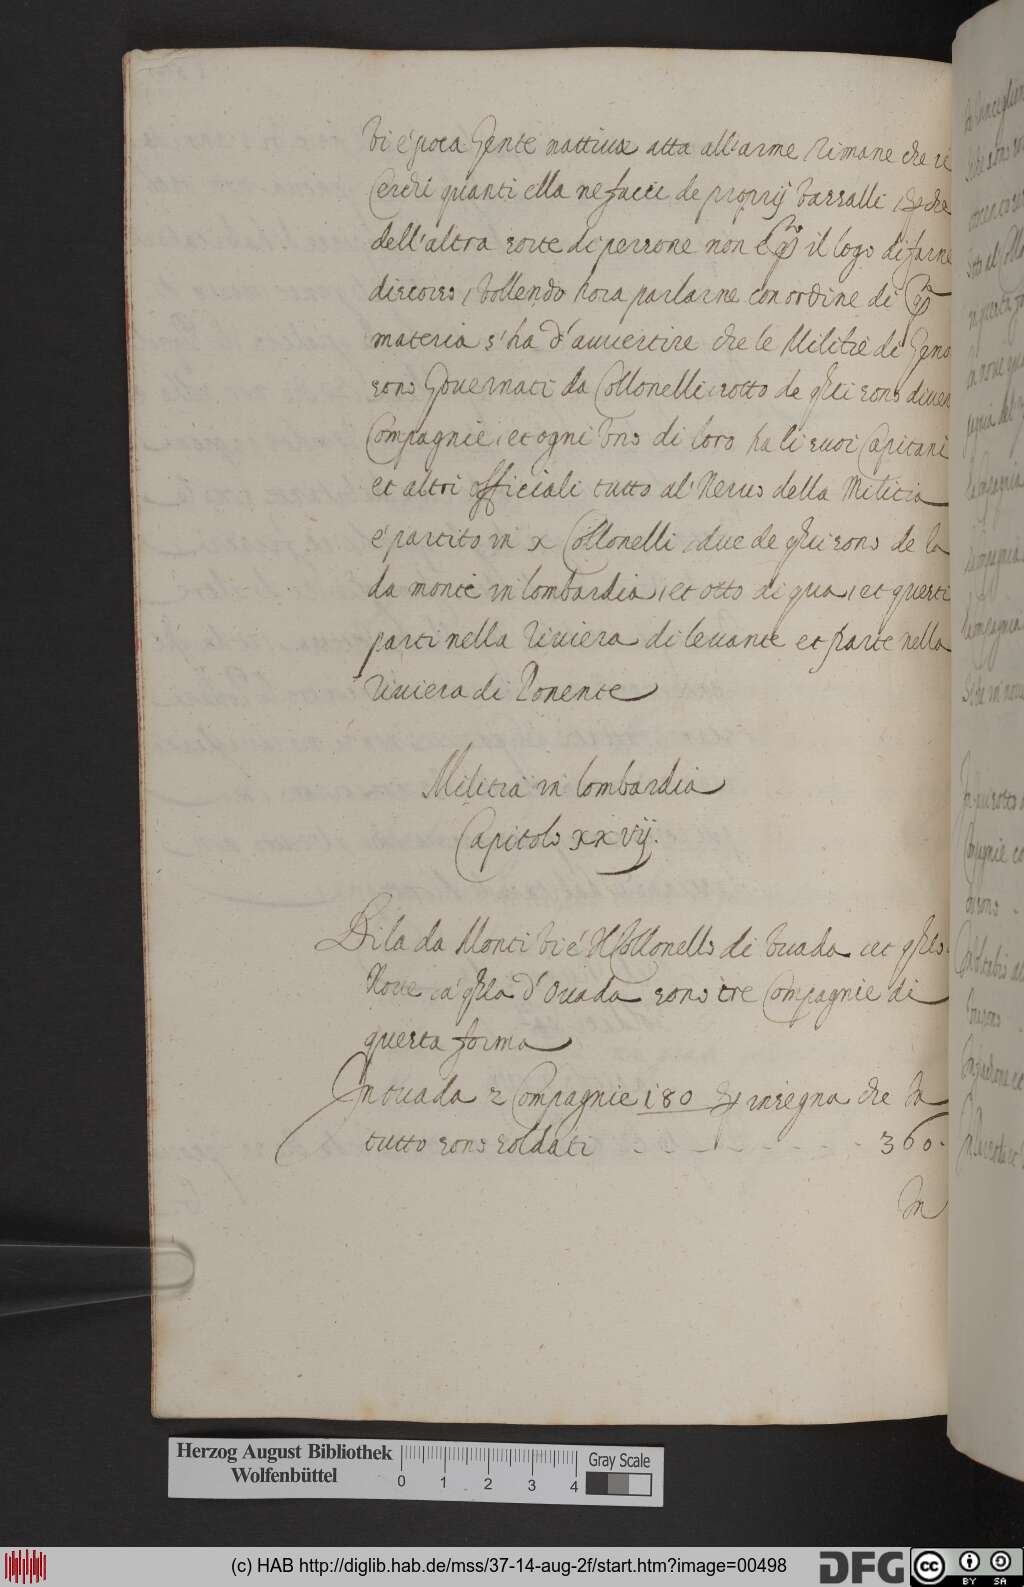 Vi é poca gente nattiua atta all'arme rimane che si
Cerchi quanti ella ne facci de proprij Vassalli, che
dell'altra sorte di persone non é il logo di farne
discorso, Vollendo hora parlarne con ordine di
materia s'ha d'auuertire che le Militie di Geno
sono Gouernati da Collonelli, sotto de qli sono diuer
Compagnie, et ogni Vno di loro ha li suoi Capitani
et altri officiali tutto al' Neruo della Militia
é partito in x Collonelli, due de qli sono de la
da monti in lombardia, et otto di qua, et questi
parti nella riuiera di leuante et parte nella
riuiera di Ponente
Militia in lombardia
Capitolo xxvij.
Di la da Monti Vi é il Collonello di Vuada, et qllo
Noue, a qlla d'Ouada sono tre Compagnie di
questa forma
In ouada 2 Compagnie 180 insegna che In
tutto sono soldati - - - - - - - 360.
In
Herzog August Bibliothek
Wolfenbüttel
0 1 2 3 4
Gray Scale
(c) HAB http://diglib.hab.de/mss/37-14-aug-2f/start.htm?image=00498
DFG
CC BY SA